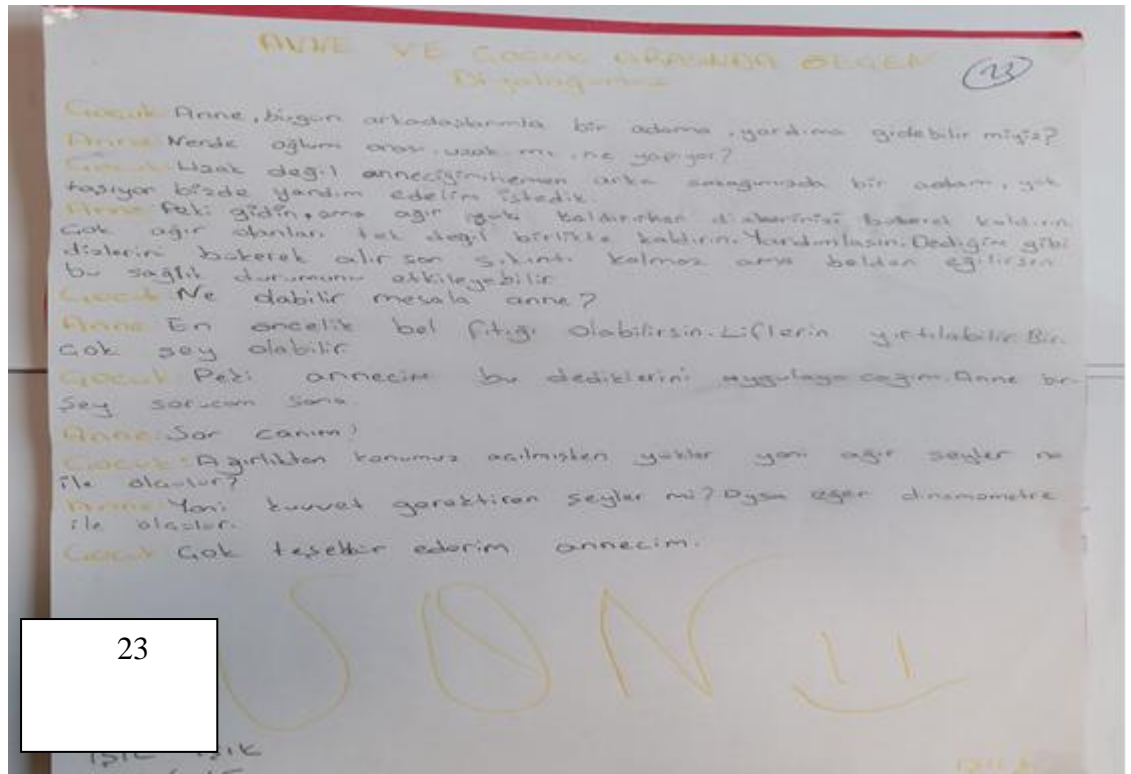 ANNE VE ÇOCUK ARASINDA GEÇEN
Diyaloğumuz
23
Çocuk: Anne, bugün arkadaşlarımla bir adama, yardıma gidebilir miyiz?
Anne: Nerde oğlum orası, uzak mı, ne yapıyor?
Çocuk: Uzak değil anneciğim hemen arka sokağımızda bir adam, yük
taşıyor bizde yardım edelim istedik.
Anne: Peki gidin, ama ağır yükü kaldırırken dizlerinizi bükerek kaldırın.
Çok ağır olanları tek değil birlikte kaldırın. Yardımlaşın. Dediğim gibi
dizlerin bükerek alırsan sıkıntı kalmaz ama belden eğilirsen
bu sağlık durumunu etkileyebilir.
Çocuk: Ne olabilir mesela anne?
Anne: En öncelik bel fıtığı olabilirsin. Liflerin yırtılabilir. Bir
çok şey olabilir.
Çocuk: Peki annecim bu dediklerini uygulayacağım. Anne bir
şey sorucam sana.
Anne: Sor canım!
Çocuk: Ağırlıktan konumuz açılmışken yükler yani ağır şeyler ne
ile ölçülür?
Anne: Yani kuvvet gerektiren şeyler mi? Oysa eğer dinamometre
ile ölçülür.
Çocuk: Çok teşekkür ederim annecim.
SON
23
IŞIK IŞIK